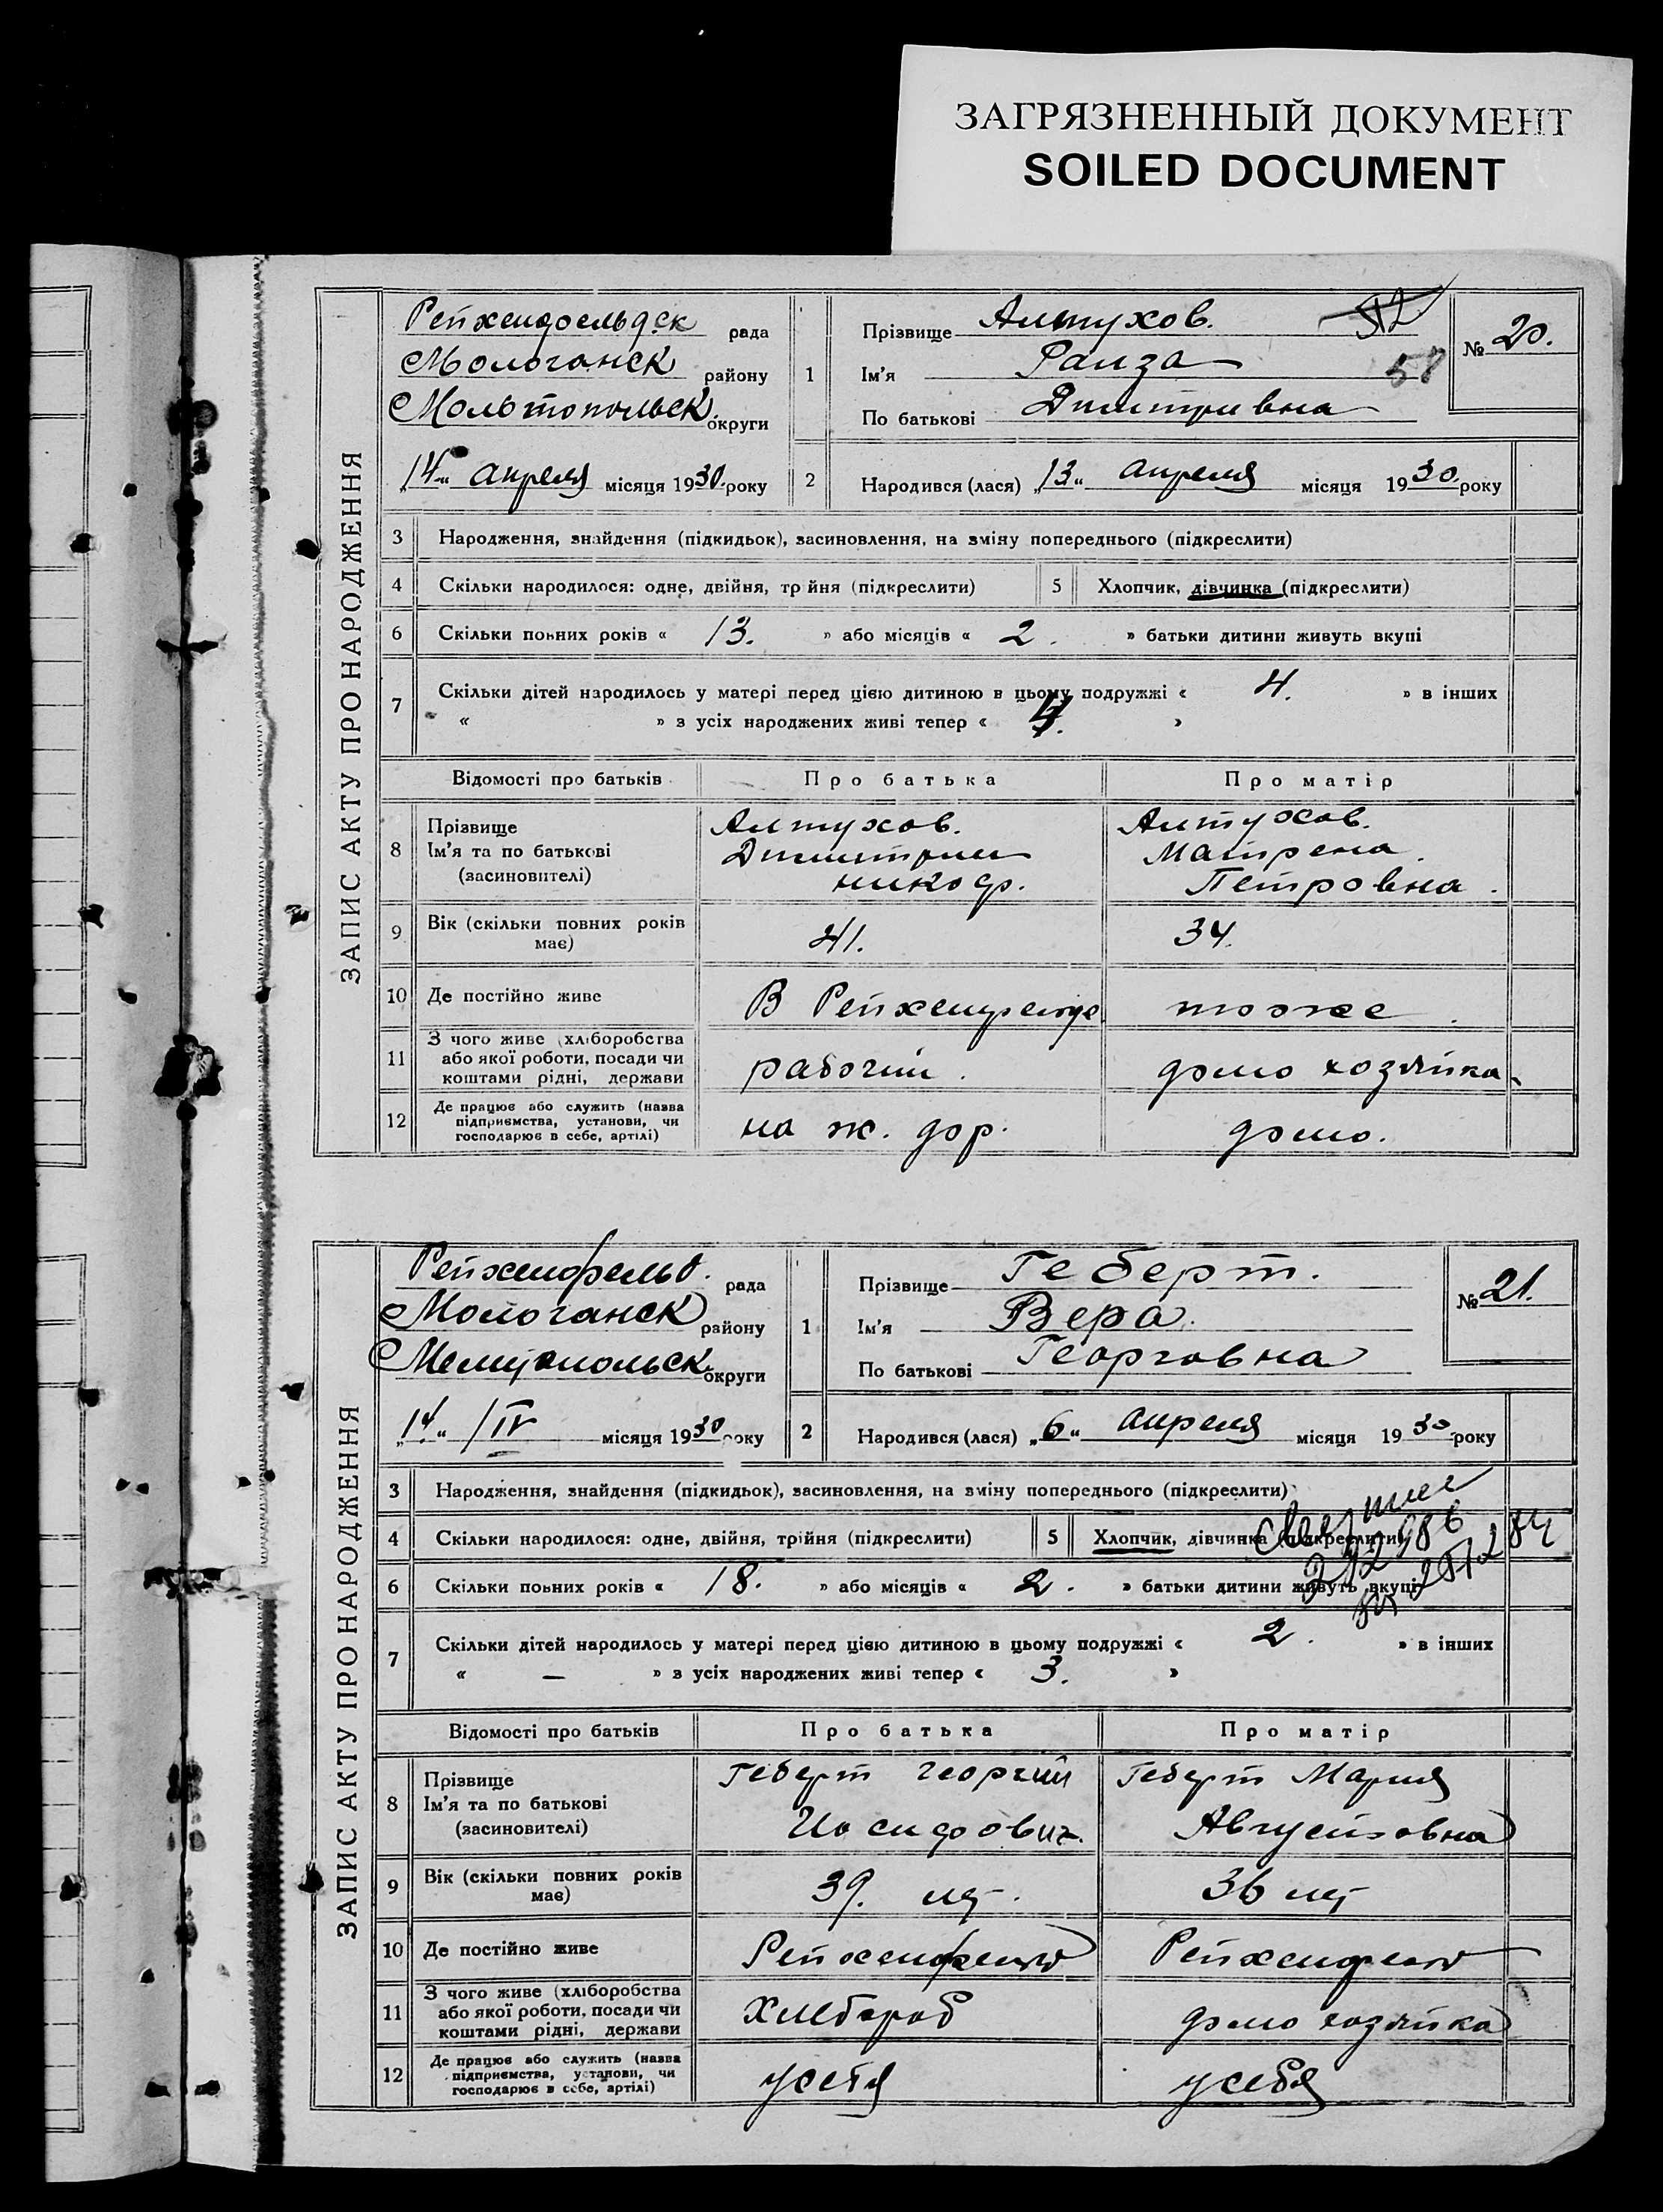 ЗАГРЯЗНЕННЫЙ ДОКУМЕНТ
SOILED DOCUMENT
ЗАПИС АКТУ ПРО НАРОДЖЕННЯ
Рейхенфельдск рада
Мологанск району
округи
„14“ апреля місяця 1930 року
1
Прізвище Алтухов.
52
58
Ім'я Раиза
По батькові Дмитривна
№ 20.
2 Народився (лася) „13“ апреля місяця 1930 року
3 Народження, знайдення (підкидьок), засиновлення, на зміну попереднього (підкреслити)
4 Скільки народилося: одне, двійня, трійня (підкреслити) 5 Хлопчик, дівчинка (підкреслити)
6 Скільки повних років « 13. » або місяців « 2. » батьки дитини живуть вкупі
7 Скільки дітей народилось у матері перед цією дитиною в цьому подружжі « 4. » в інших
« » з усіх народжених живі тепер « »
Відомості про батьків Про батька Про матір
8 Прізвище Ім'я та по батькові (засиновителі)
Алтухов. Алтухов.
Димитрии Матрена
никоф. Петровна.
9 Вік (скільки повних років має) 41. 34.
10 Де постійно живе В Рейхенфельде тоже.
11 З чого живе (хліборобства або якої роботи, посади чи коштами рідні, держави рабочий. домо хозяйка
12 Де працює або служить (назва підприємства, установи, чи господарює в себе, артілі) на ж. дор. домо.
ЗАПИС АКТУ ПРО НАРОДЖЕННЯ
Рейхенфельд. рада
Мологанск району
Мелитопольск округи
„14“ /IV місяця 1930 року
1
Прізвище Геберт.
Ім'я Вера.
По батькові Георговна
№ 21.
2 Народився (лася) „6“ апреля місяця 1930 року
3 Народження, знайдення (підкидьок), засиновлення, на зміну попереднього (підкреслити)
4 Скільки народилося: одне, двійня, трійня (підкреслити) 5 Хлопчик, дівчинка (підкреслити)
6 Скільки повних років « 18. » або місяців « 2. » батьки дитини живуть вкупі
7 Скільки дітей народилось у матері перед цією дитиною в цьому подружжі « 2. » в інших
« — » з усіх народжених живі тепер « 3. »
Відомості про батьків Про батька Про матір
8 Прізвище Ім'я та по батькові (засиновителі)
Геберт Георгий Геберт Мария
Иосифович. Августовна
9 Вік (скільки повних років має) 39. лет. 36 лет
10 Де постійно живе Рейхенфельд Рейхенфельд
11 З чого живе (хліборобства або якої роботи, посади чи коштами рідні, держави Хлебороб домо хозяйка
12 Де працює або служить (назва підприємства, установи, чи господарює в себе, артілі) усебя усебя